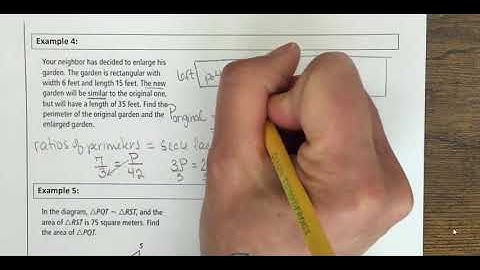 Example 4:
Your neighbor has decided to enlarge his
garden. The garden is rectangular with
width 6 feet and length 15 feet. The new
garden will be similar to the original one,
but will have a length of 35 feet. Find the
perimeter of the original garden and the
enlarged garden.
Poriginal
ratios of perimeters =
7/3 = P/42 3P/3 = 2
Example 5:
In the diagram, △PQT ~ △RST, and the
area of △RST is 75 square meters. Find
the area of △PQT.
S